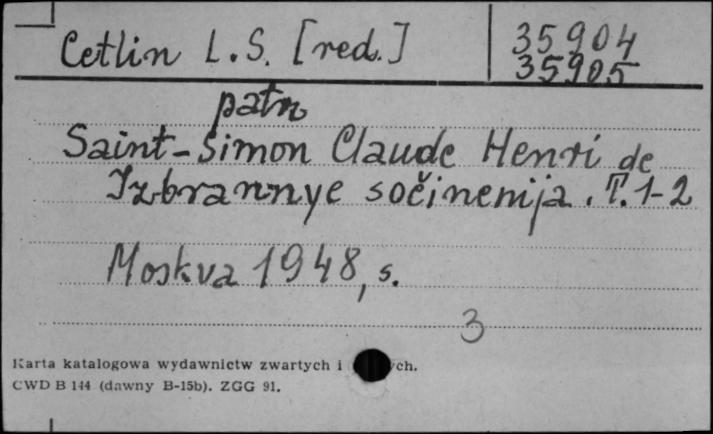 Cetlin L.S. [red.] 35904
35905
patrz
Saint-Simon Claude Henri de
Izbrannye sočinenija. T. 1-2
Moskva 1948, s.
3
Karta katalogowa wydawnictw zwartych i ych.
CWD B 144 (dawny B-15b). ZGG 91.